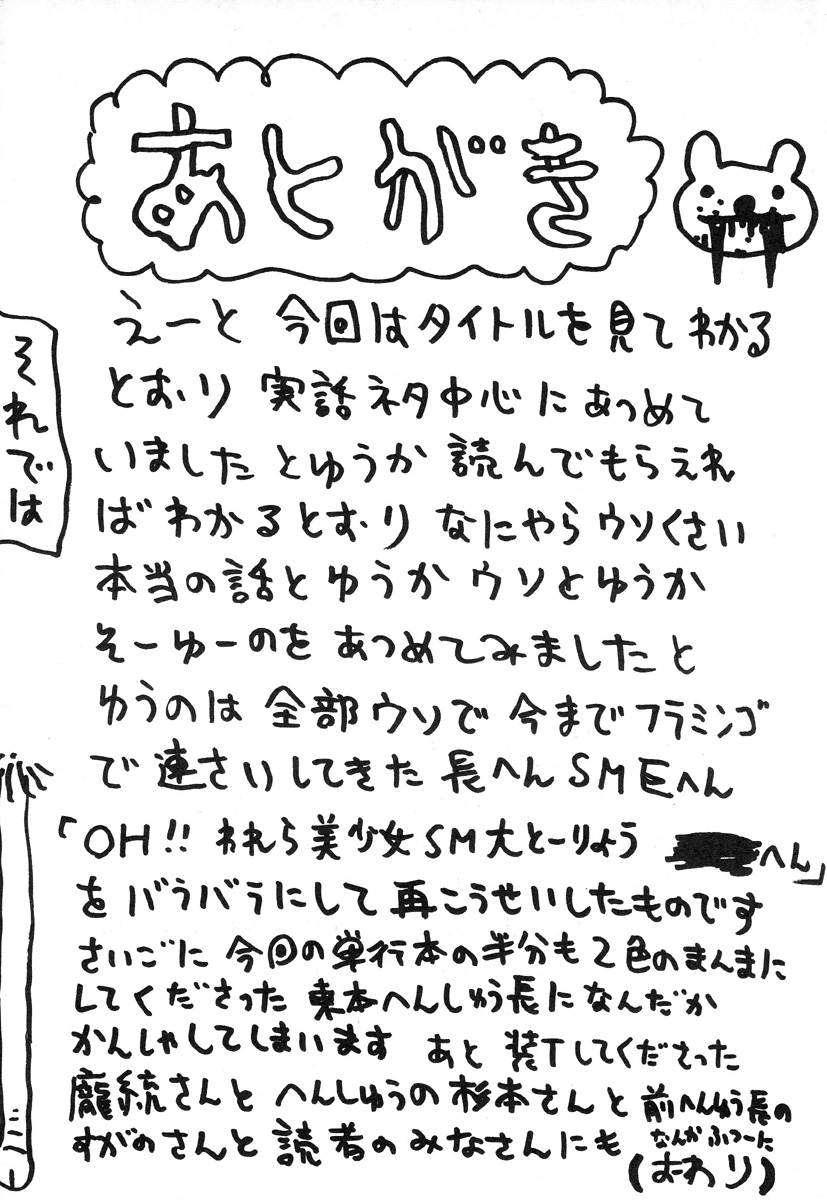 あとがき
えーと 今回はタイトルを見てわかる
とおり 実話ネタ中心にあつめて
いました とゆうか 読んでもらえれ
ば わかるとおり なにやら ウソくさい
本当の話と ゆうか ウソとゆうか
そーゆーのを あつめてみましたと
ゆうのは 全部ウソで 今までフラミンゴ
で 連さいしてきた 長へんSMEへん
「OH!! われら美少女SM大とーりょう へん」
を バラバラにして 再こうせいしたものです
さいごに 今回の単行本の半分も2色のまんまに
してくださった 東本へんしゅう長に なんだか
かんしゃしてしまいます あと 装Tしてくださった
龐統さんと へんしゅうの杉本さんと 前へんしゅう長の
すがのさんと 読者のみなさんにも なんかふつーに
(おわり)
それでは